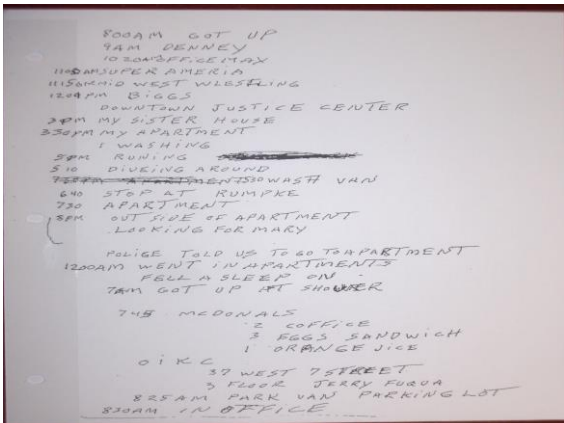 800AM GOT UP
9AM DENNEY
1020AM OFFICEMAX
1100AM SUPER AMERIA
1115AM MID WEST WLESTLING
1204PM BIGGS
DOWNTOWN JUSTICE CENTER
3PM MY SISTER HOUSE
330PM MY APARTMENT
I WASHING
5PM RUNING
510 DIVEING AROUND
530 WASH VAN
640 STOP AT RUMPKE
730 APARTMENT
8PM OUT SIDE OF APARTMENT
LOOKING FOR MARY
POLICE TOLD US TO GO TO APARTMENT
1200AM WENT IN APARTMENTS
FELL A SLEEP ON
7AM GOT UP AT SHOWER
745 MCDONALS
2 COFFICE
3 EGGS SANDWICH
1 ORANGE JICE
OIKC
37 WEST 7 STREET
3 FLOOR JERRY FUQUA
825AM PARK VAN PARKING LOT
830AM IN OFFICE